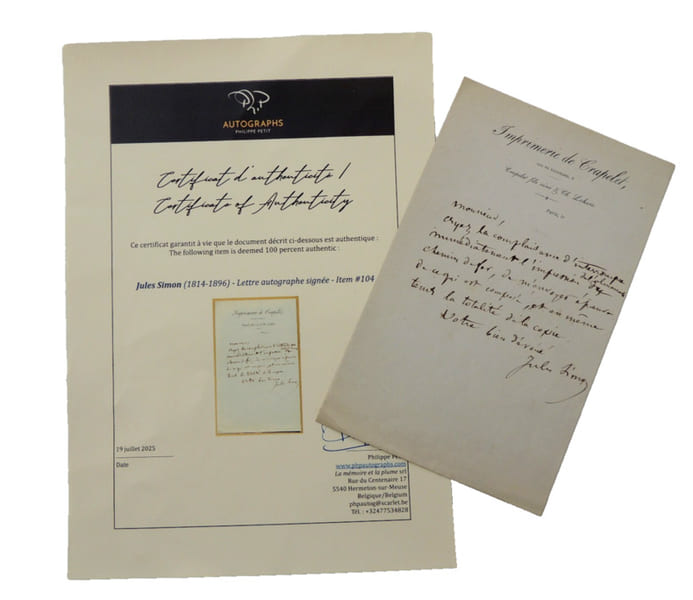 PhP
AUTOGRAPHS
PHILIPPE PETIT
Certificat d'authenticité /
Certificate of Authenticity
Ce certificat garantit à vie que le document décrit ci-dessous est authentique :
The following item is deemed 100 percent authentic :
Jules Simon (1814-1896) - Lettre autographe signée - Item #104
19 juillet 2025
Date
Philippe Pe
www.phpautographs.com
La mémoire et la plume srl
Rue du Centenaire 17
5540 Hermeton-sur-Meuse
Belgique/Belgium
phpautog@scarlet.be
Tél. : +32477534828
Imprimerie de Crapelet,
Paris, le
monsieur,
ayez la complaisance d'interrompre
immédiatement l'impression des
chemin de fer, de m'envoyer épreuve
de ce qui est composé, et en même
temps la totalité de la copie.
Votre bien dévoué
Jules Simon